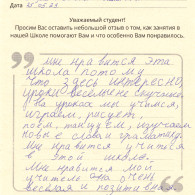 Дата 15.03.23
Уважаемый студент!
Просим Вас оставить небольшой отзыв о том, как занятия в
нашей Школе помогают Вам и что особенно Вам понравилось.
Мне нравится эта
школа потому
что здесь интересно,
уроки весёлые
на уроках мы учимся,
играем,
поём, танцуем, изучаем
новые слова и грамматику.
Мне нравится учиться
в этой школе.
Мне нравится мой
учитель она очень
весёлая и позитивная